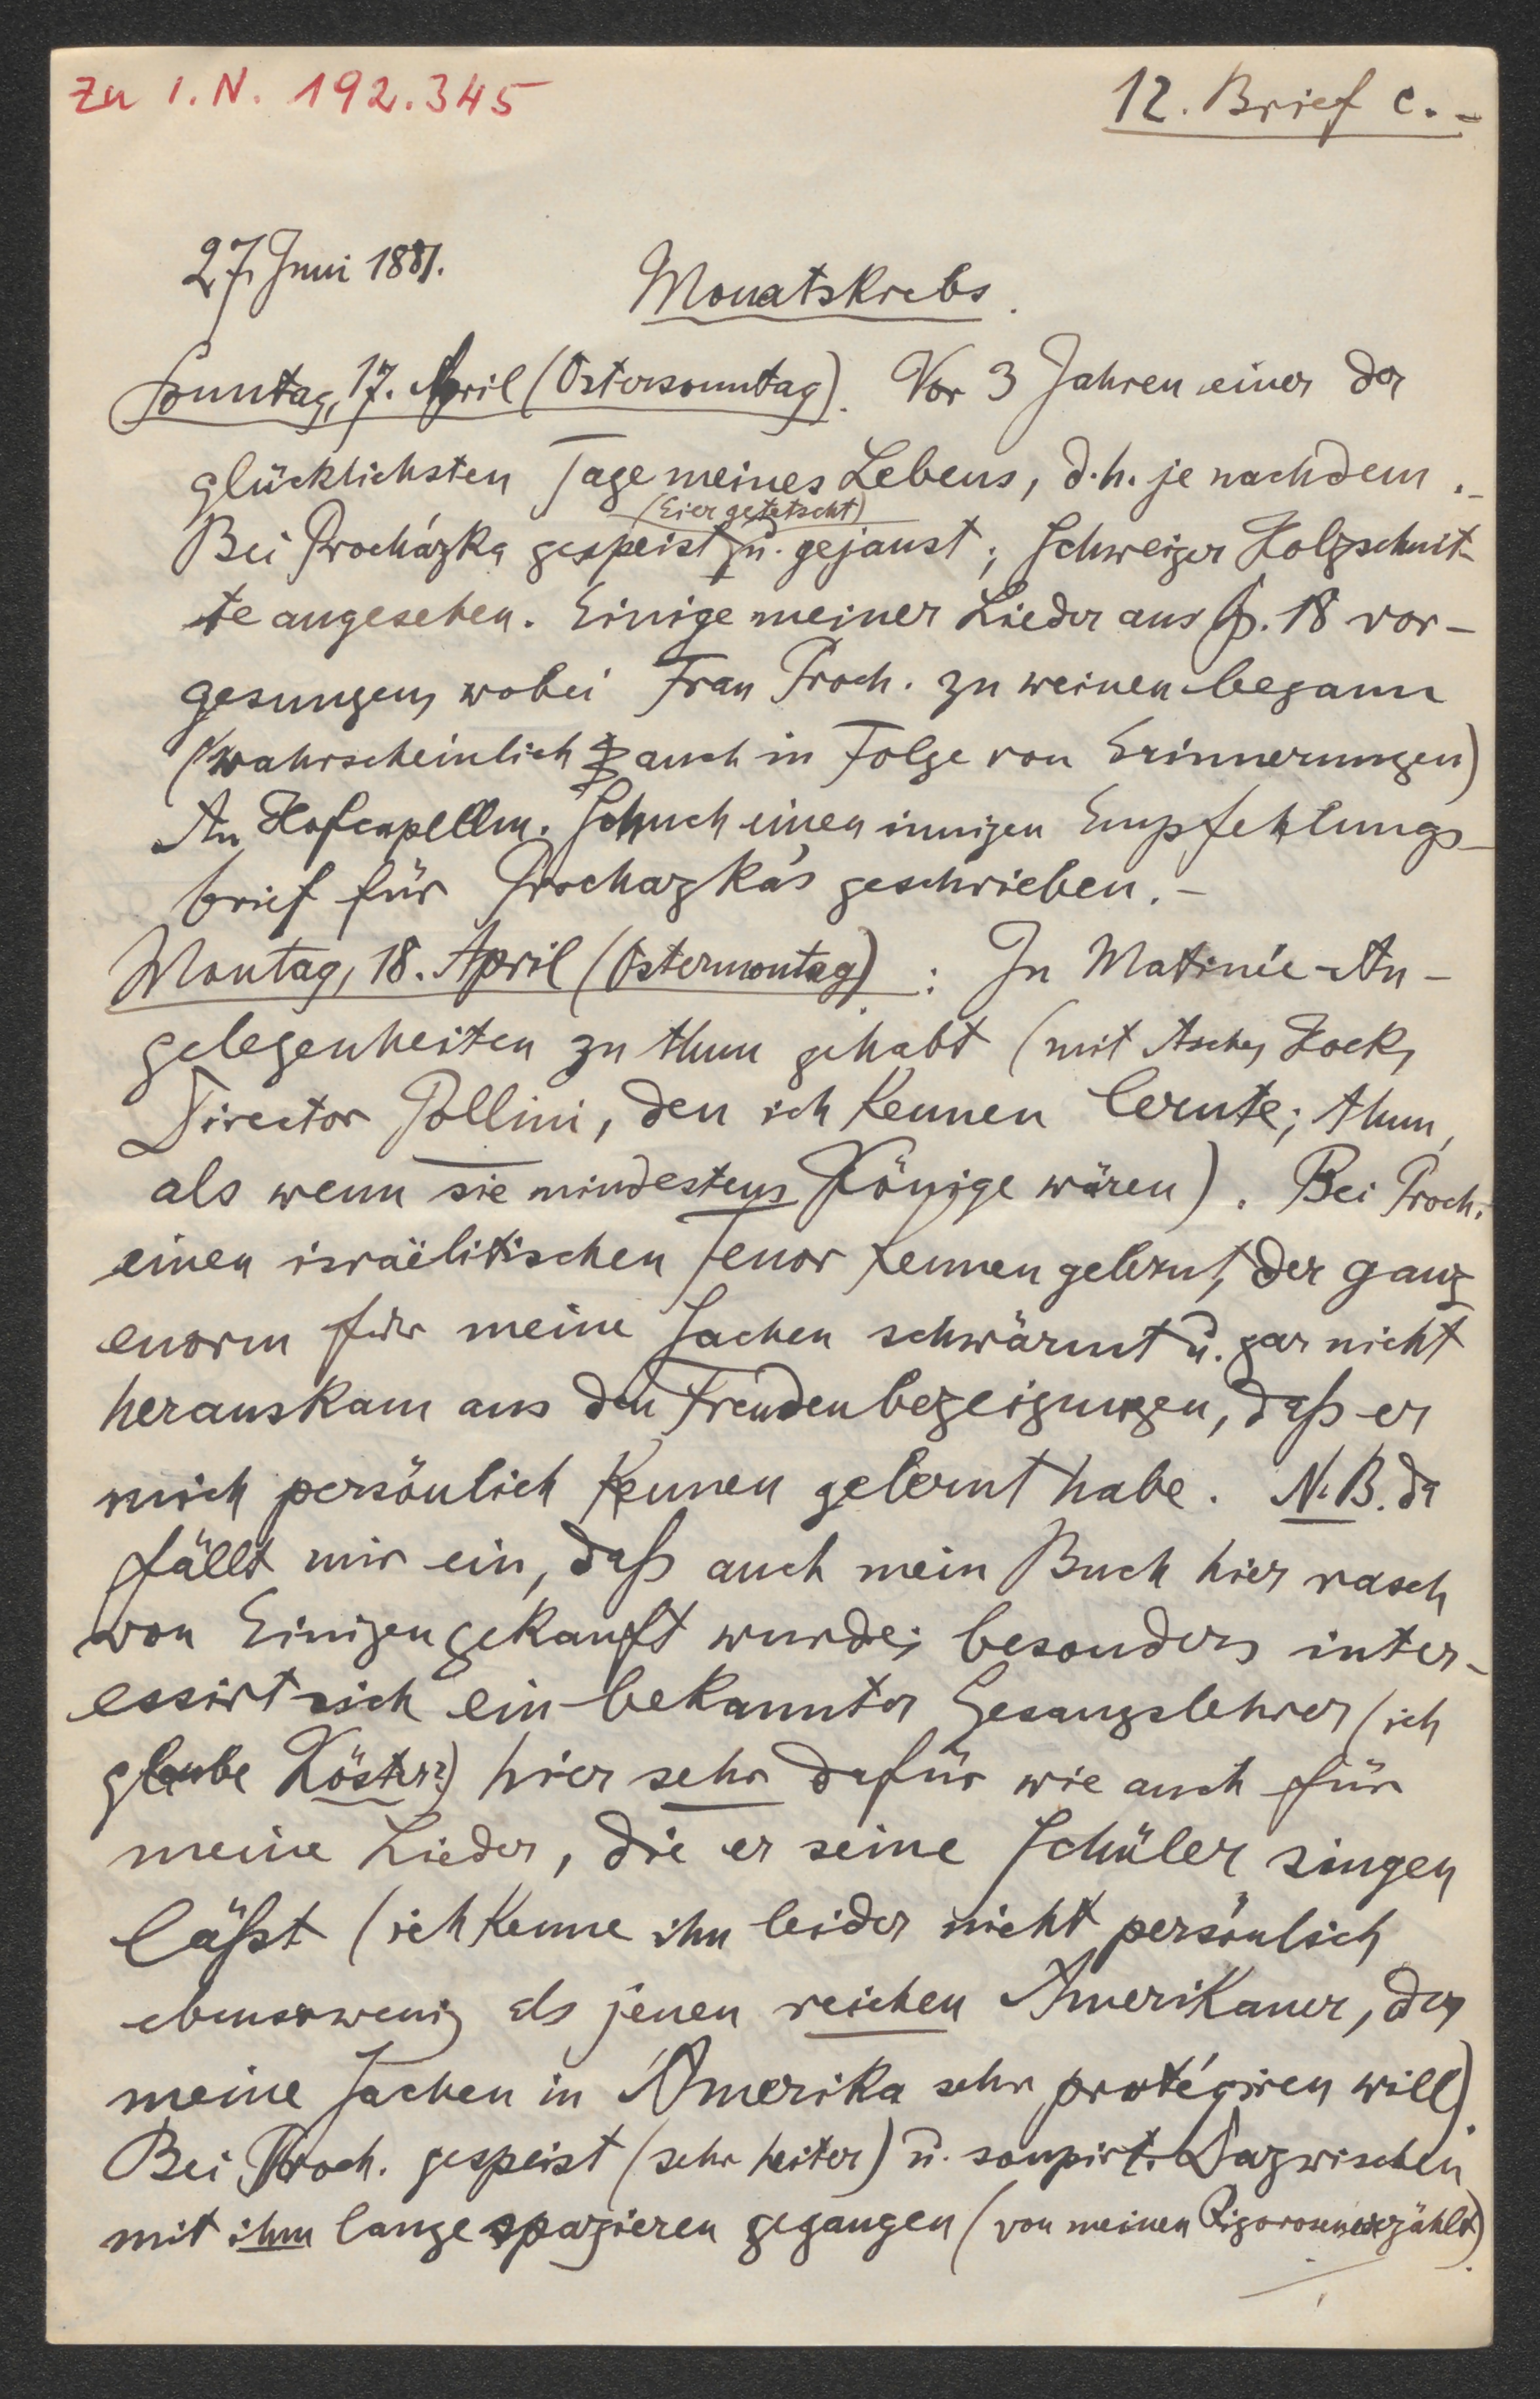 Zu I.N. 192.345
12. Brief c. -
27. Juni 1881.
Monatskrebs.
Sonntag, 17. April (Ostersonntag). Vor 3 Jahren einer der
glücklichsten Tage meines Lebens, d.h. je nachdem . -
(Eier getetscht)
Bei Procházka gespeist u. gejaust; Schweizer Holzschnit-
te angesehen. Einige meiner Lieder aus Op. 18 vor-
gesungen, wobei Frau Proch. zu weinen begann
(wahrscheinlich auch in Folge von Erinnerungen)
An Hofcapellm. Schuch einen innigen Empfehlungs-
brief für Prochazka's geschrieben. -
Montag, 18. April (Ostermontag): In Matinée-An-
gelegenheiten zu thun gehabt (mit Asche, Zock,
Director Pollini, den ich kennen lernte; thun,
als wenn sie mindestens Könige wären). Bei Proch.
einen israëlitischen Tenor kennen gelernt, der ganz
enorm für meine Sachen schwärmt u. gar nicht
herauskam aus den Freudenbezeigungen, daß er
mich persönlich kennen gelernt habe. N.B. da
fällt mir ein, daß auch mein Buch hier rasch
von Einigen gekauft wurde; besonders inter-
essirt sich ein bekannter Gesangslehrer (ich
glaube Köster?) hier sehr dafür wie auch für
meine Lieder, die er seine Schüler singen
läßt (ich kenne ihn leider nicht persönlich
ebensowenig als jenen reichen Amerikaner, der
meine Sachen in Amerika sehr protégiren will).
Bei Proch. gespeist (sehr heiter) u. soupirt. Dazwischen
mit ihm lange spazieren gegangen (von meinen Rigorosen erzählt).